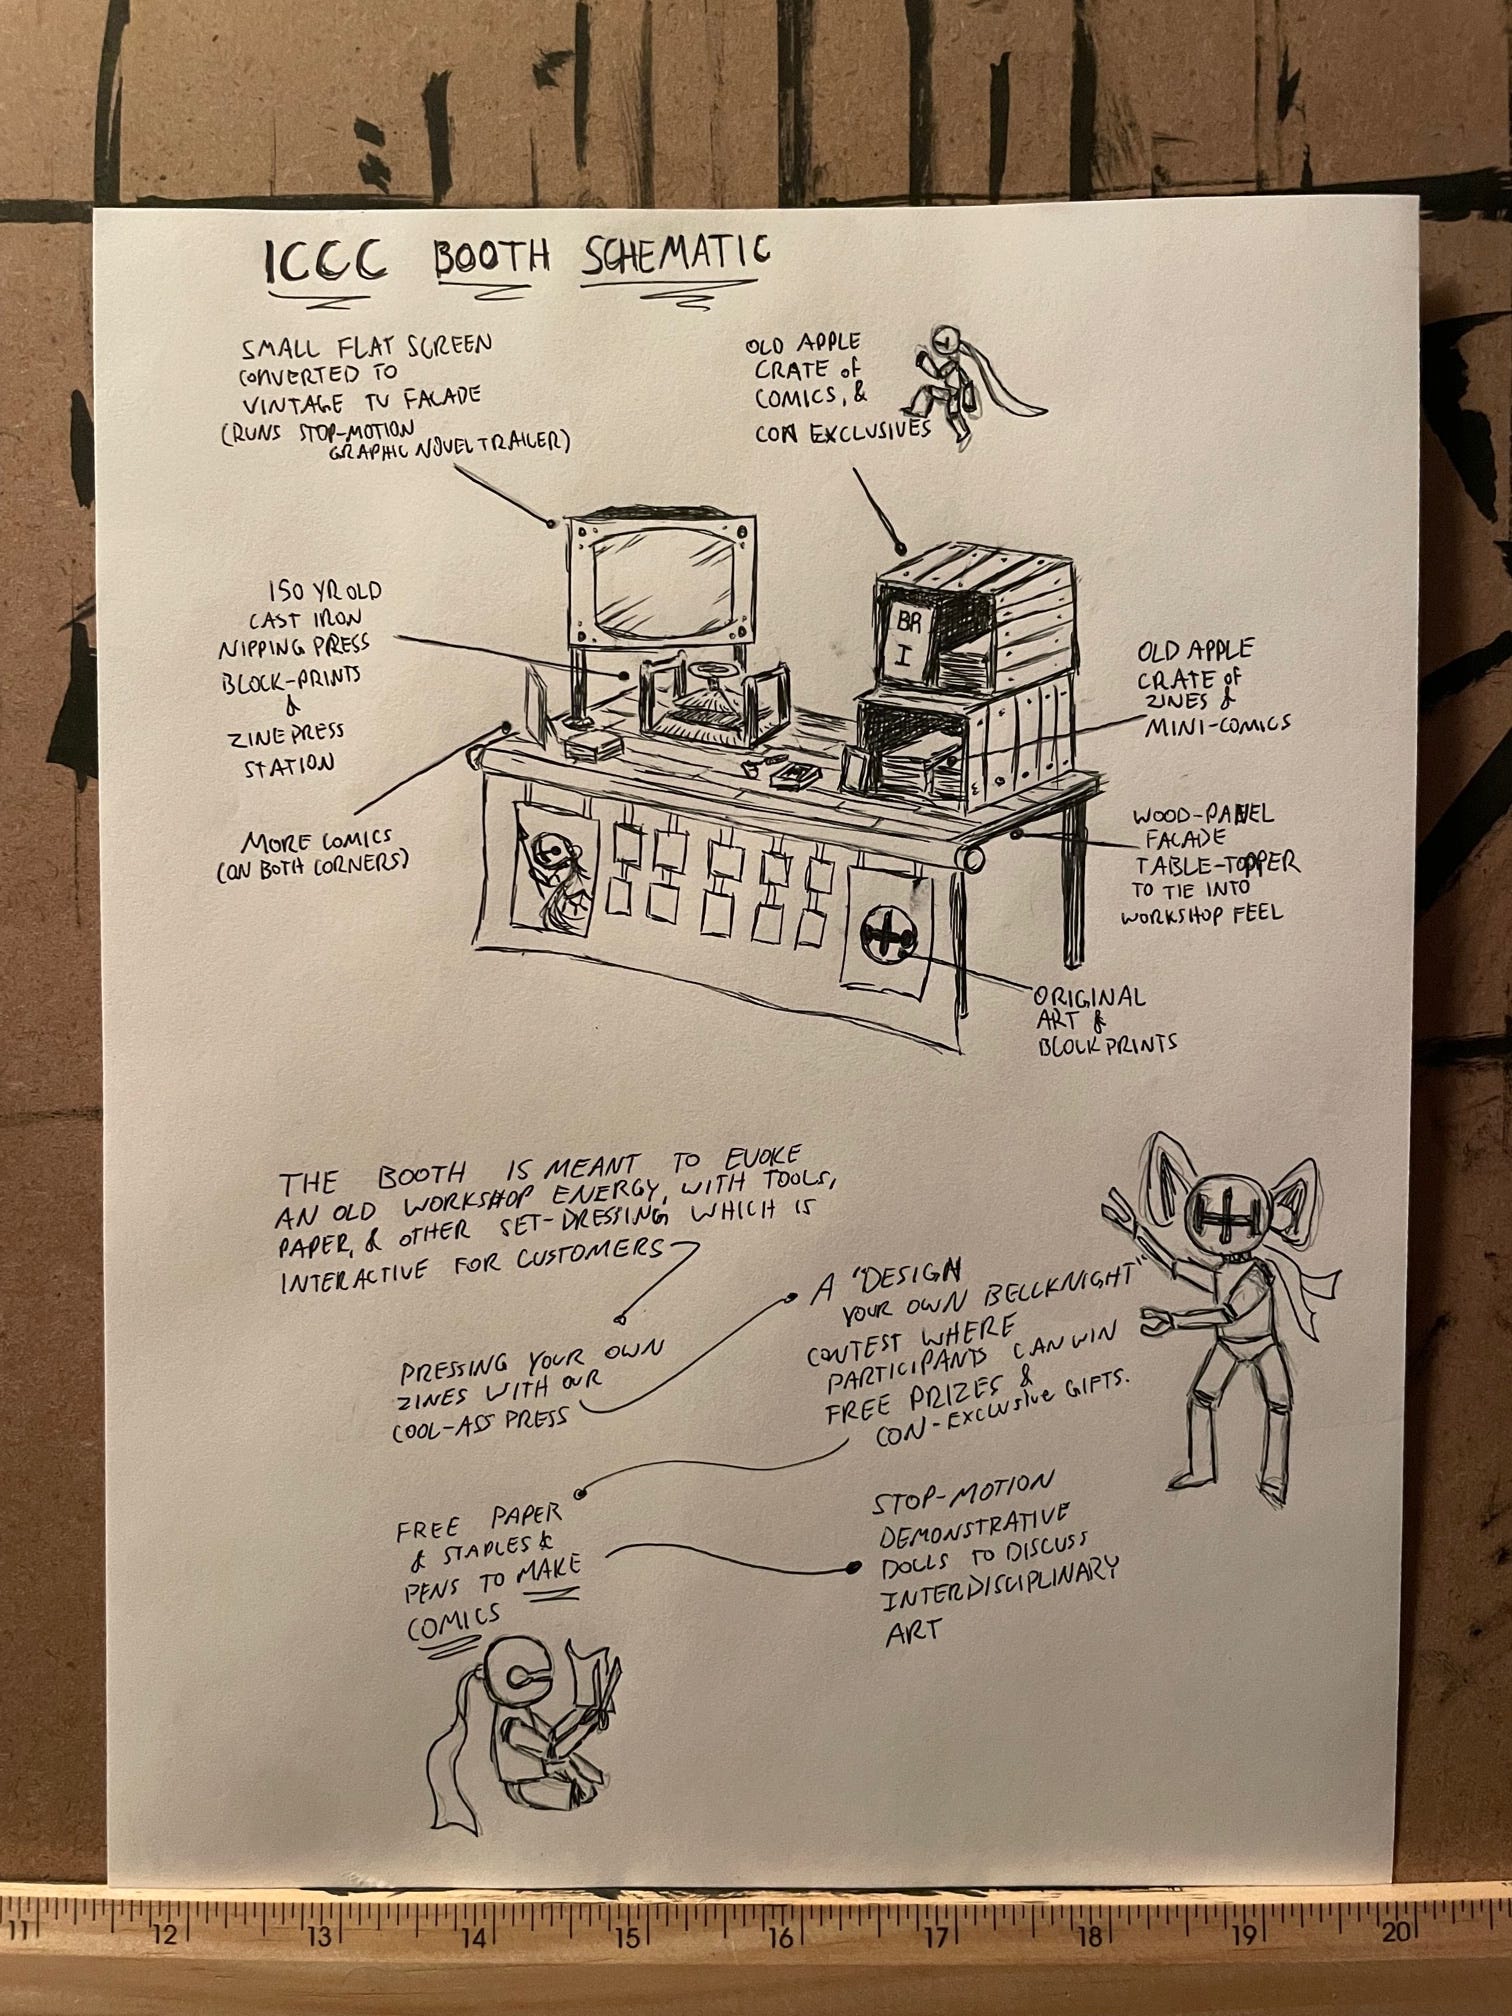 ICCC BOOTH SCHEMATIC
SMALL FLAT SCREEN
CONVERTED TO
VINTAGE TV FACADE
(RUNS STOP-MOTION
GRAPHIC NOVEL TRAILER)
OLD APPLE
CRATE of
COMICS, &
CON EXCLUSIVES
150 YR OLD
CAST IRON
NIPPING PRESS
BLOCK-PRINTS
&
ZINE PRESS
STATION
BR
I
OLD APPLE
CRATE of
ZINES &
MINI-COMICS
MORE COMICS
(ON BOTH CORNERS)
WOOD-PANEL
FACADE
TABLE-TOPPER
TO TIE INTO
WORKSHOP FEEL
ORIGINAL
ART &
BLOCKPRINTS
THE BOOTH IS MEANT TO EVOKE
AN OLD WORKSHOP ENERGY, WITH TOOLS,
PAPER, & OTHER SET-DRESSING WHICH IS
INTERACTIVE FOR CUSTOMERS
PRESSING YOUR OWN
ZINES WITH OUR
COOL-ASS PRESS
A "DESIGN
YOUR OWN BELLKNIGHT"
CONTEST WHERE
PARTICIPANTS CAN WIN
FREE PRIZES &
CON-EXCLUSIVE GIFTS.
FREE PAPER
& STAPLES &
PENS TO MAKE
COMICS
STOP-MOTION
DEMONSTRATIVE
DOLLS TO DISCUSS
INTERDISCIPLINARY
ART
11 12 13 14 15 16 17 18 19 20